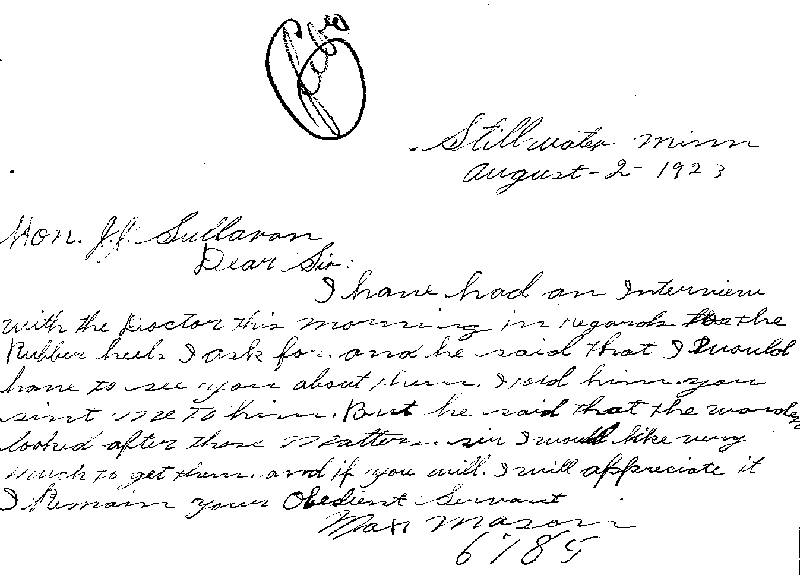 Stillwater Minn
August-2-1923
Hon. J.J. Sullavan
Dear Sir:
I have had an Interview
with the Doctor this morning in regards to the
Rubber heels I ask for. and he said that I would
have to see you about them. I told him you
sint me to him. But he said that the warden
looked after those matters. sir I would like very
much to get them. and if you will. I will appreciate it
I Remain your Obedient Servant
Max Mason
6785